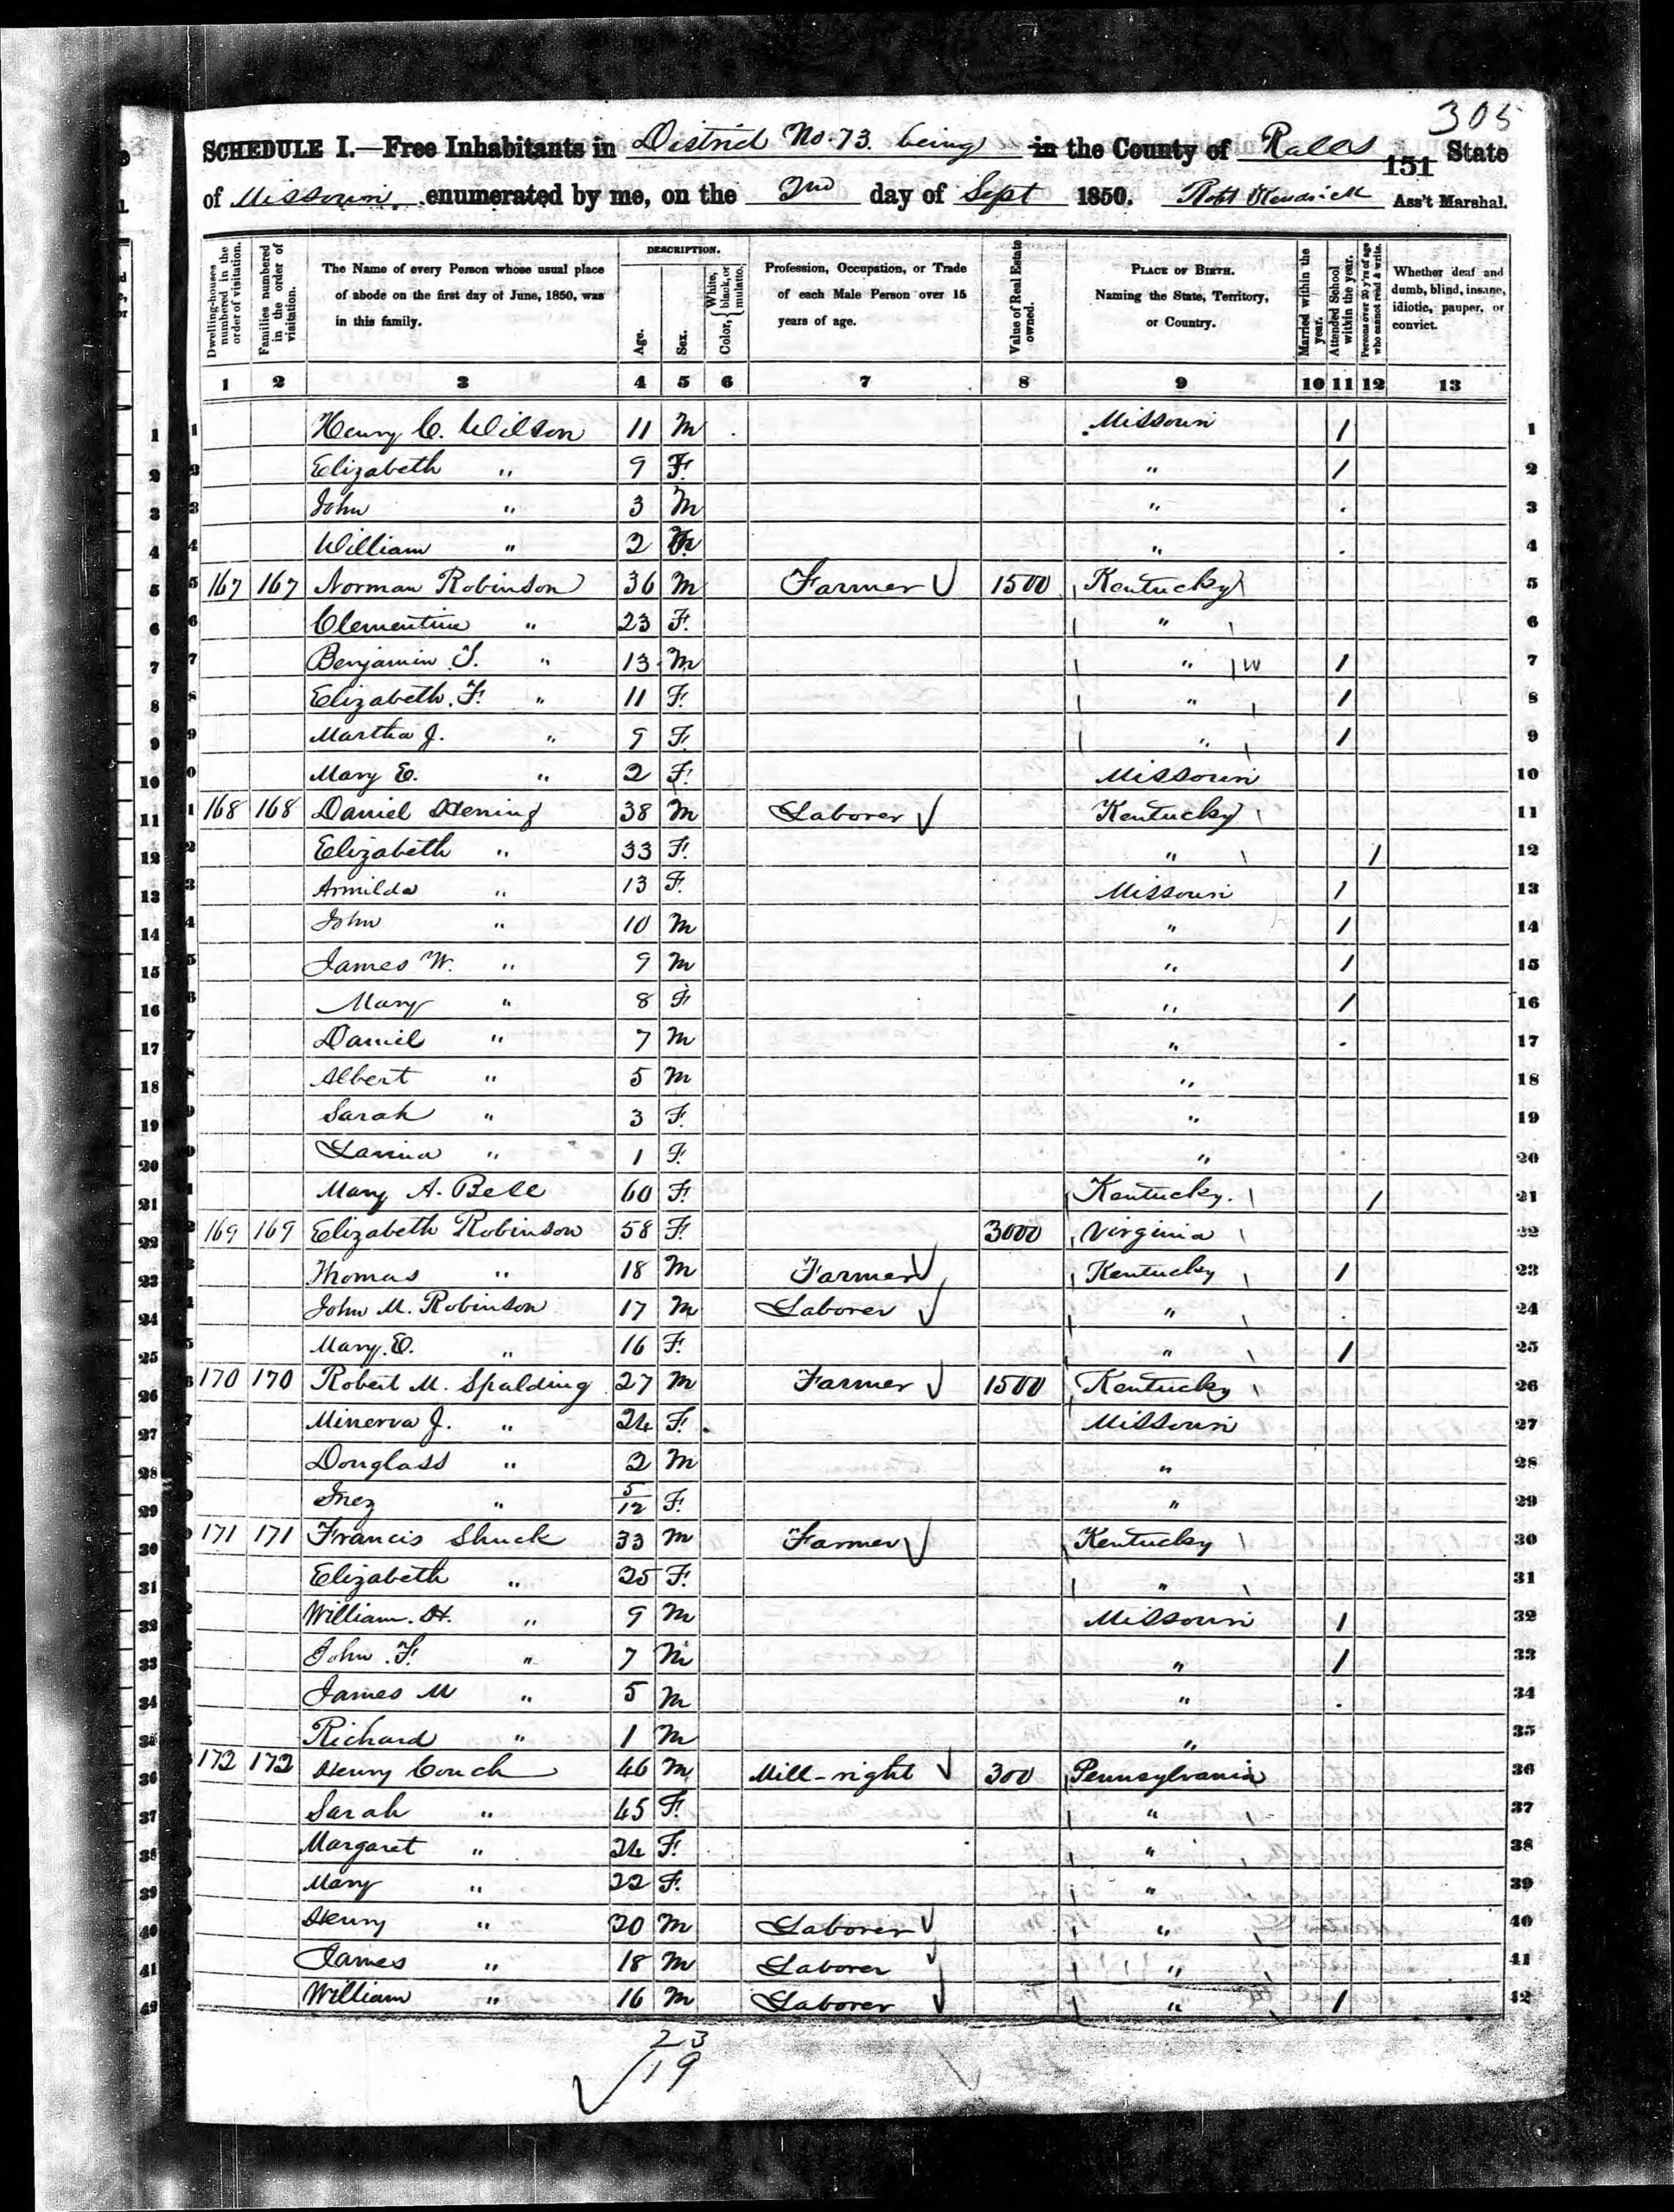 305
SCHEDULE I.—Free Inhabitants in District No. 73. being in the County of Ralls 151 State
of Missouri. enumerated by me, on the 2nd day of Sept 1850. Robt Ass't Marshal.
Dwelling-houses numbered in the order of visitation.
Families numbered in the order of visitation.
The Name of every Person whose usual place of abode on the first day of June, 1850, was in this family.
DESCRIPTION.
Age.
Sex.
Color, { White, black, or mulatto.
Profession, Occupation, or Trade of each Male Person over 15 years of age.
Value of Real Estate owned.
PLACE OF BIRTH. Naming the State, Territory, or Country.
Married within the year.
Attended School within the year.
Persons over 20 y'rs of age who cannot read & write.
Whether deaf and dumb, blind, insane, idiotic, pauper, or convict.
1 2 3 4 5 6 7 8 9 10 11 12 13
1 Henry C. Wilson 11 M Missouri / 1
2 Elizabeth " 9 F. " / 2
3 John " 3 M " 3
4 William " 2 M " 4
5 167 167 Norman Robinson 36 M Farmer 1500 Kentucky 5
6 Clementine " 23 F. " 6
7 Benjamin T. " 13 M " W / 7
8 Elizabeth. F. " 11 F. " / 8
9 Martha J. " 9 F. " / 9
10 Mary E. " 2 F. Missouri 10
11 168 168 Daniel Hening 38 M Laborer Kentucky 11
12 Elizabeth " 33 F. " / 12
13 Armilda " 13 F. Missouri / 13
14 John " 10 M " / 14
15 James W. " 9 M " / 15
16 Mary " 8 F " / 16
17 Daniel " 7 M " 17
18 Albert " 5 M " 18
19 Sarah " 3 F. " 19
20 " 1 F. " 20
21 Mary A. Bell 60 F. Kentucky. / 21
22 169 169 Elizabeth Robinson 58 F. 3000 Virginia 22
23 Thomas " 18 M Farmer Kentucky / 23
24 John M. Robinson 17 M Laborer " 24
25 Mary. E. " 16 F. " / 25
26 170 170 Robert M. Spalding 27 M Farmer 1500 Kentucky 26
27 Minerva J. " 24 F. Missouri 27
28 Douglass " 2 M " 28
29 Inez " 5/12 F. " 29
30 171 171 Francis Shuck 33 M Farmer Kentucky 30
31 Elizabeth " 25 F. " 31
32 William. H. " 9 M Missouri / 32
33 John. F. " 7 M " / 33
34 James M " 5 M " 34
35 Richard " 1 M " 35
36 172 172 Henry Couch 46 M Mill-right 300 Pennsylvania 36
37 Sarah " 45 F. " 37
38 Margaret " 24 F. " 38
39 Mary " 22 F. " 39
40 Henry " 20 M Laborer " 40
41 James " 18 M Laborer " 41
42 William " 16 M Laborer " / 42
23
19